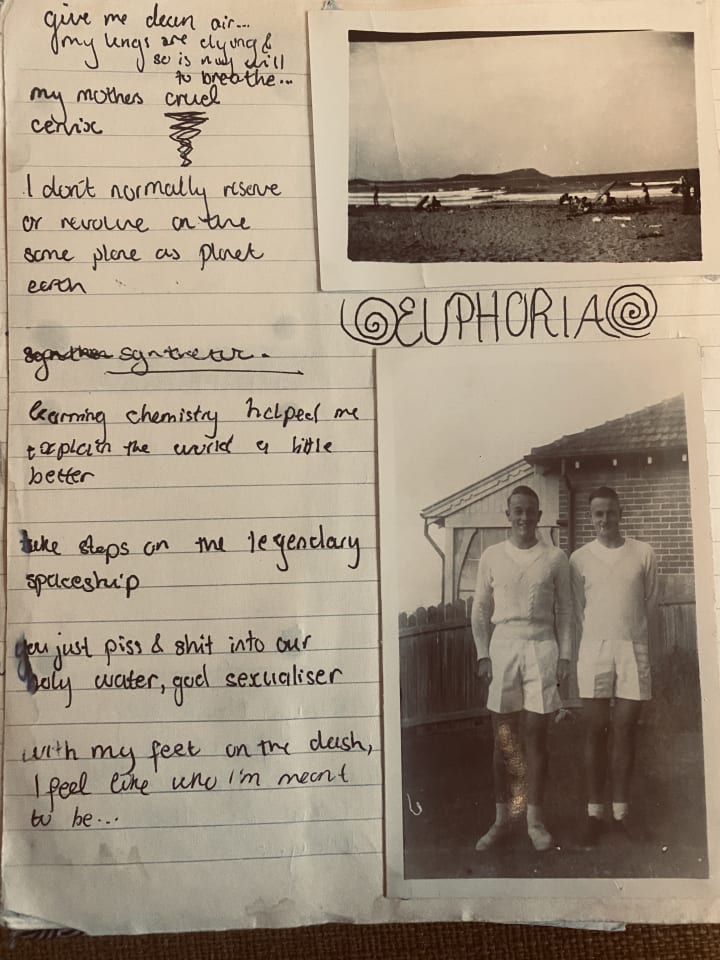 give me clean air...
my lungs are dying &
so is my will
to breathe...
my mothers cruel
cervix
I don't normally reserve
or revolve on the
same plane as planet
earth
EUPHORIA
learning chemistry helped me
explain the world a little
better
take steps on the legendary
spaceship
you just piss & shit into our
holy water, god sexualiser
with my feet on the dash,
I feel like who i'm meant
to be...